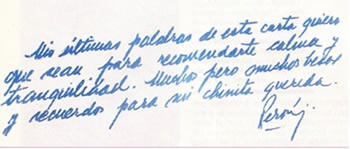 Mis últimas palabras de esta carta quiero
que sean para recomendarte calma y
tranquilidad. Muchos pero muchos besos
y recuerdos para mi chinita querida.
Perón